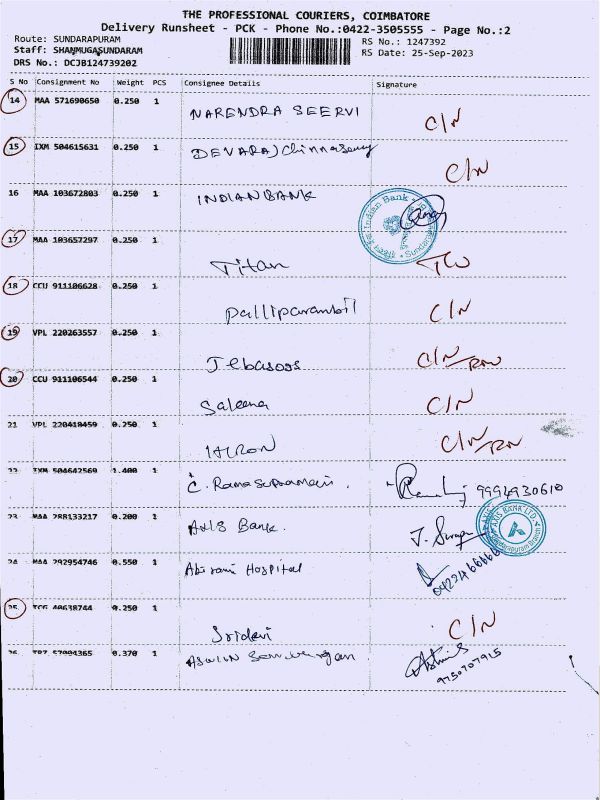 THE PROFESSIONAL COURIERS, COIMBATORE
Delivery Runsheet - PCK - Phone No.:0422-3505555 - Page No.:2
Route: SUNDARAPURAM
RS No.: 1247392
Staff: SHANMUGASUNDARAM
RS Date: 25-Sep-2023
DRS No.: DCJB124739202
S No Consignment No Weight PCS Consignee Details Signature
14 MAA 571690650 0.250 1 NARENDRA SEERVI C/N
15 IXM 504615631 0.250 1 DEVARAJ Chinnasamy C/N
16 MAA 103672803 0.250 1 INDIAN BANK
Indian Bank
17 MAA 103657297 0.250 1 Titan
18 CCU 911106628 0.250 1 Palliparambil C/N
19 VPL 220263557 0.250 1 Jebasoos C/N/RN
20 CCU 911106544 0.250 1 Saleena C/N
21 VPL 220418459 0.250 1 C/N/RN
22 IXM 504642569 1.400 1 9994930610
23 MAA 288133217 0.200 1 AXIS Bank.
AXIS BANK LTD.
Sundarapuram Branch
24 MAA 292954746 0.550 1 Abirami Hospital
25 40638744 0.250 1 Sridevi C/N
26 57004365 0.370 1 9750707915